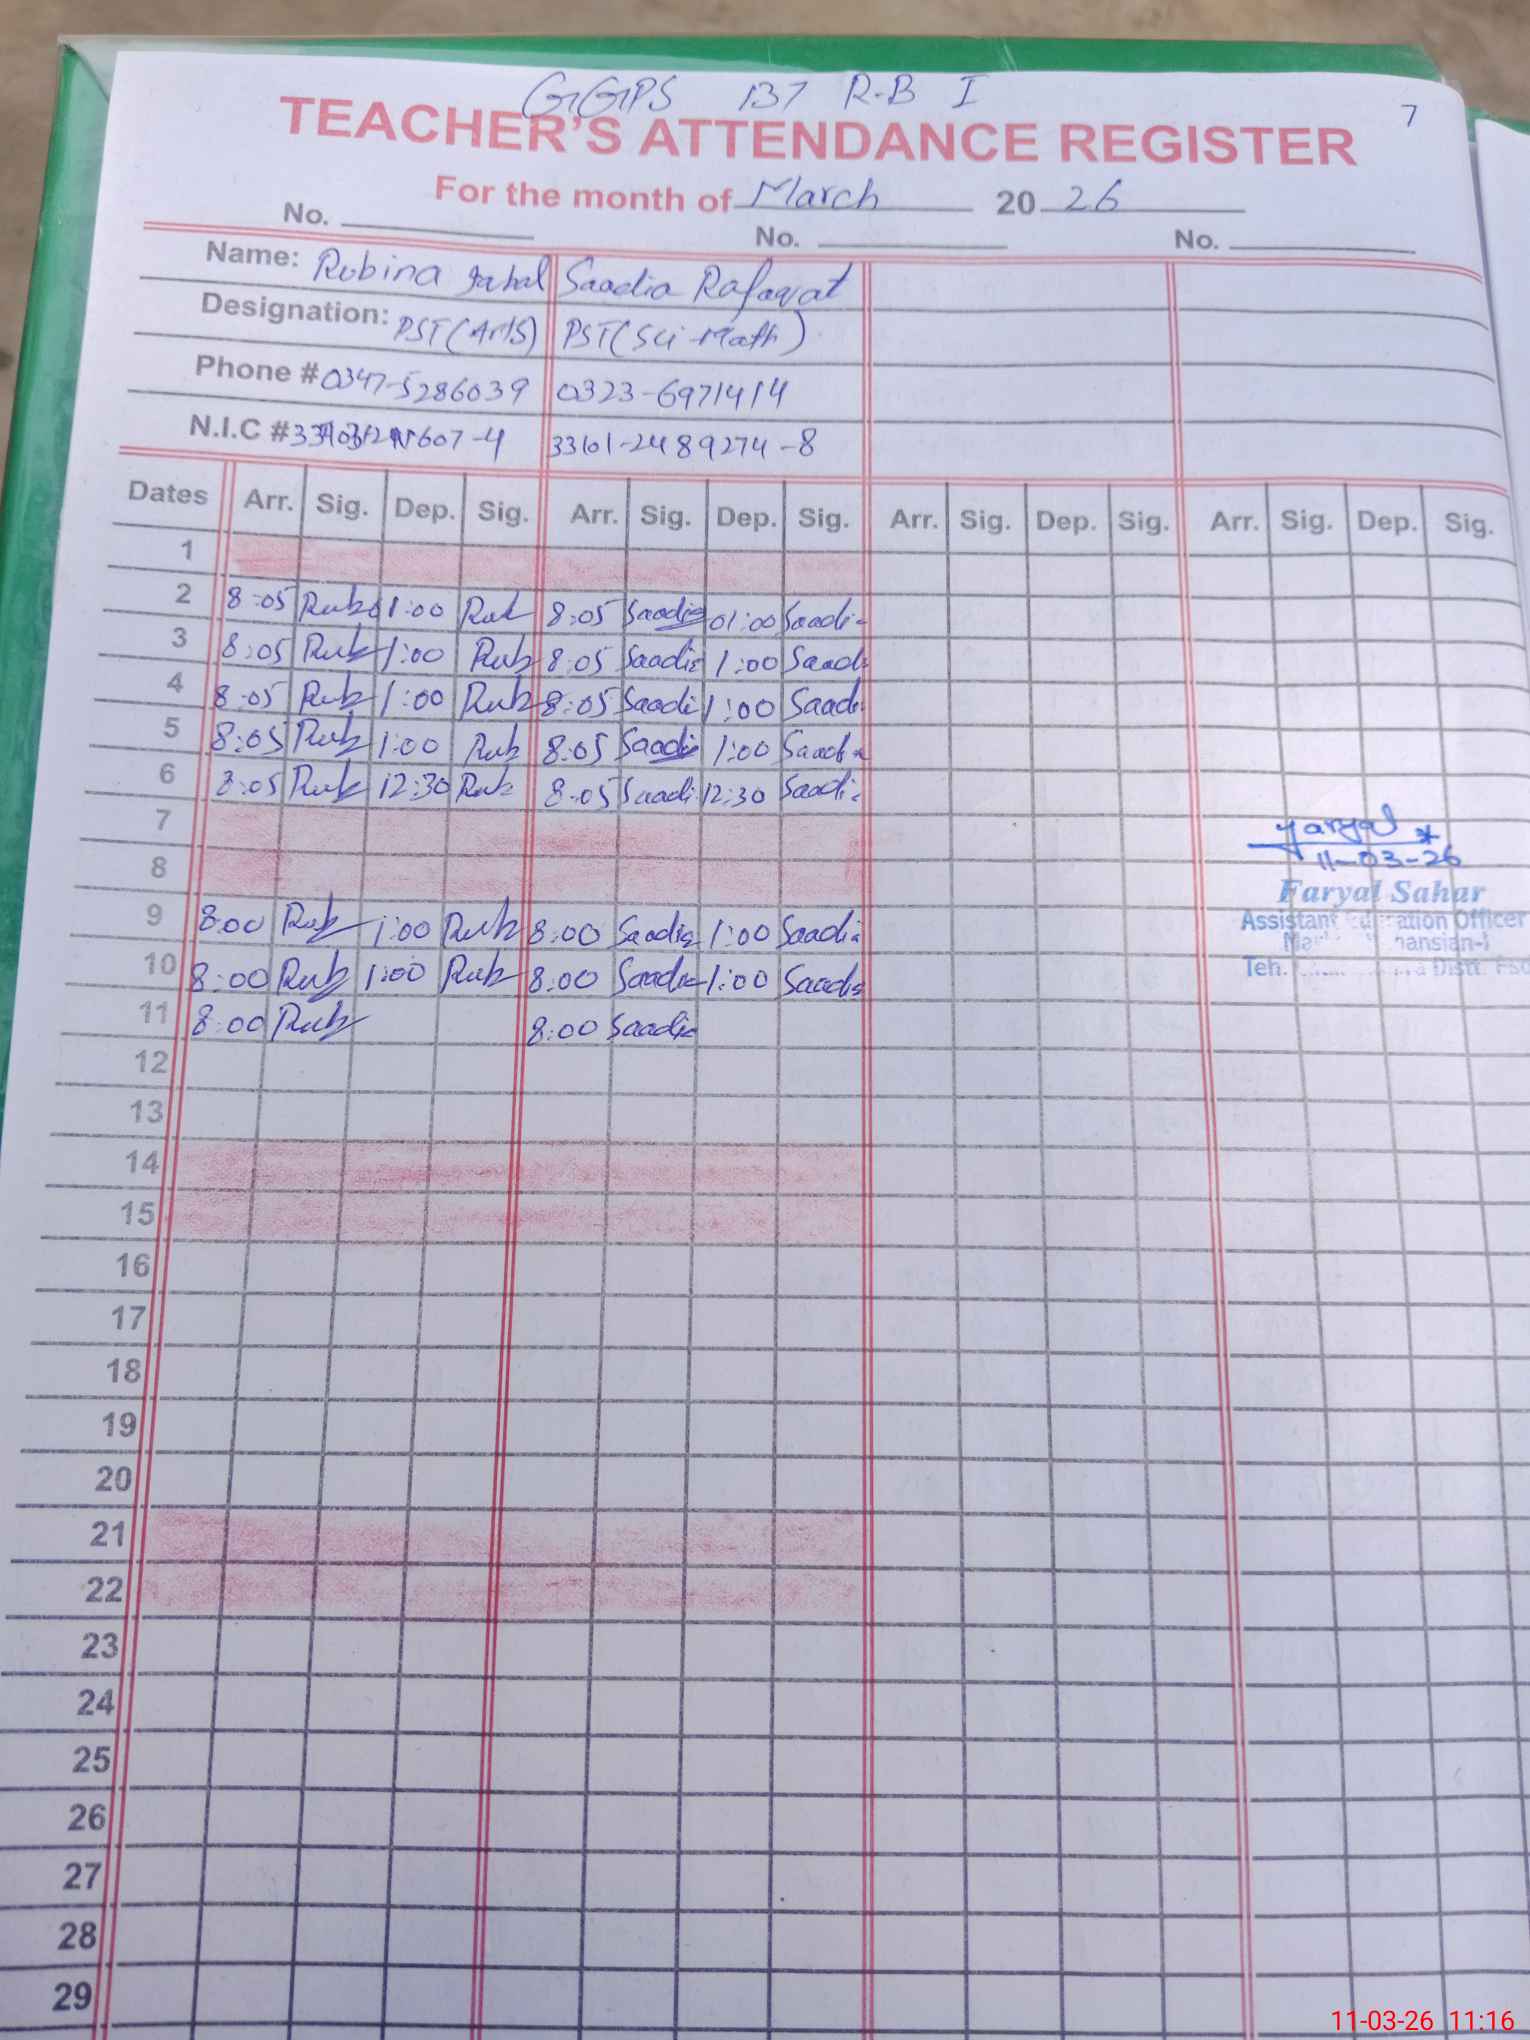 GGPS 137 R.B I
7
TEACHER'S ATTENDANCE REGISTER
For the month of March 2026
No. No. No.
Name: Rubina Saadia Rafaqat
Designation: PST (Arts) PST (Sci-Math)
Phone # 0347-5286039 0323-6971414
N.I.C # 607-4 33101-2489274-8
Dates Arr. Sig. Dep. Sig. Arr. Sig. Dep. Sig. Arr. Sig. Dep. Sig. Arr. Sig. Dep. Sig.
1
2 8:05 Rub 1:00 Rub 8:05 Saadia 01:00 Saadia
3 8:05 Rub 1:00 Rub 8:05 Saadia 1:00 Saadi
4 8:05 Rub 1:00 Rub 8:05 Saadi 1:00 Saadi
5 8:05 Rub 1:00 Rub 8:05 Saadi 1:00 Saadia
6 8:05 Rub 12:30 Rub 8:05 Saadi 12:30 Saadi
7
8
9 8:00 Rub 1:00 Rub 8:00 Saadia 1:00 Saadia
10 8:00 Rub 1:00 Rub 8:00 Saadia 1:00 Saadia
11 8:00 Rub 8:00 Saadia
Faryal
11-03-26
Faryal Sahar
Assistant Education Officer
Teh. Distt. Fsd
12
13
14
15
16
17
18
19
20
21
22
23
24
25
26
27
28
29
11-03-26 11:16